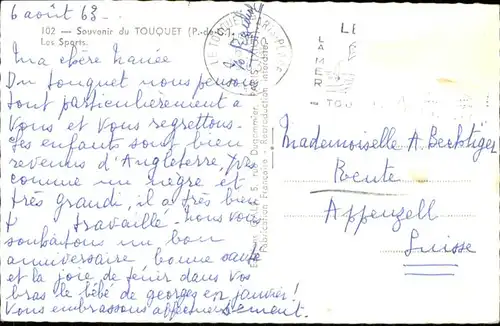 6 août 63
102 — Souvenir du TOUQUET (P.-de-C.)
Les Sports.
Ma chère Nanée
Du touquet nous pensons
tout particulièrement à
vous et vous regrettons.
Les enfants sont bien
revenus d'Angleterre,
comme un nègre et
très grandi, il a très bien
travaillé. nous vous
souhaitons un bon
anniversaire bonne santé
et la joie de tenir dans vos
bras le bébé de georges en janvier!
Vous embrassons affectueusement.
LE TOUQUET PARIS-PLAGE
LA MER
TOU
Reproduction interdite
Fabrication Française
rue Dugommier
Mademoiselle A. Bechtiger
Reute
Appenzell
Suisse